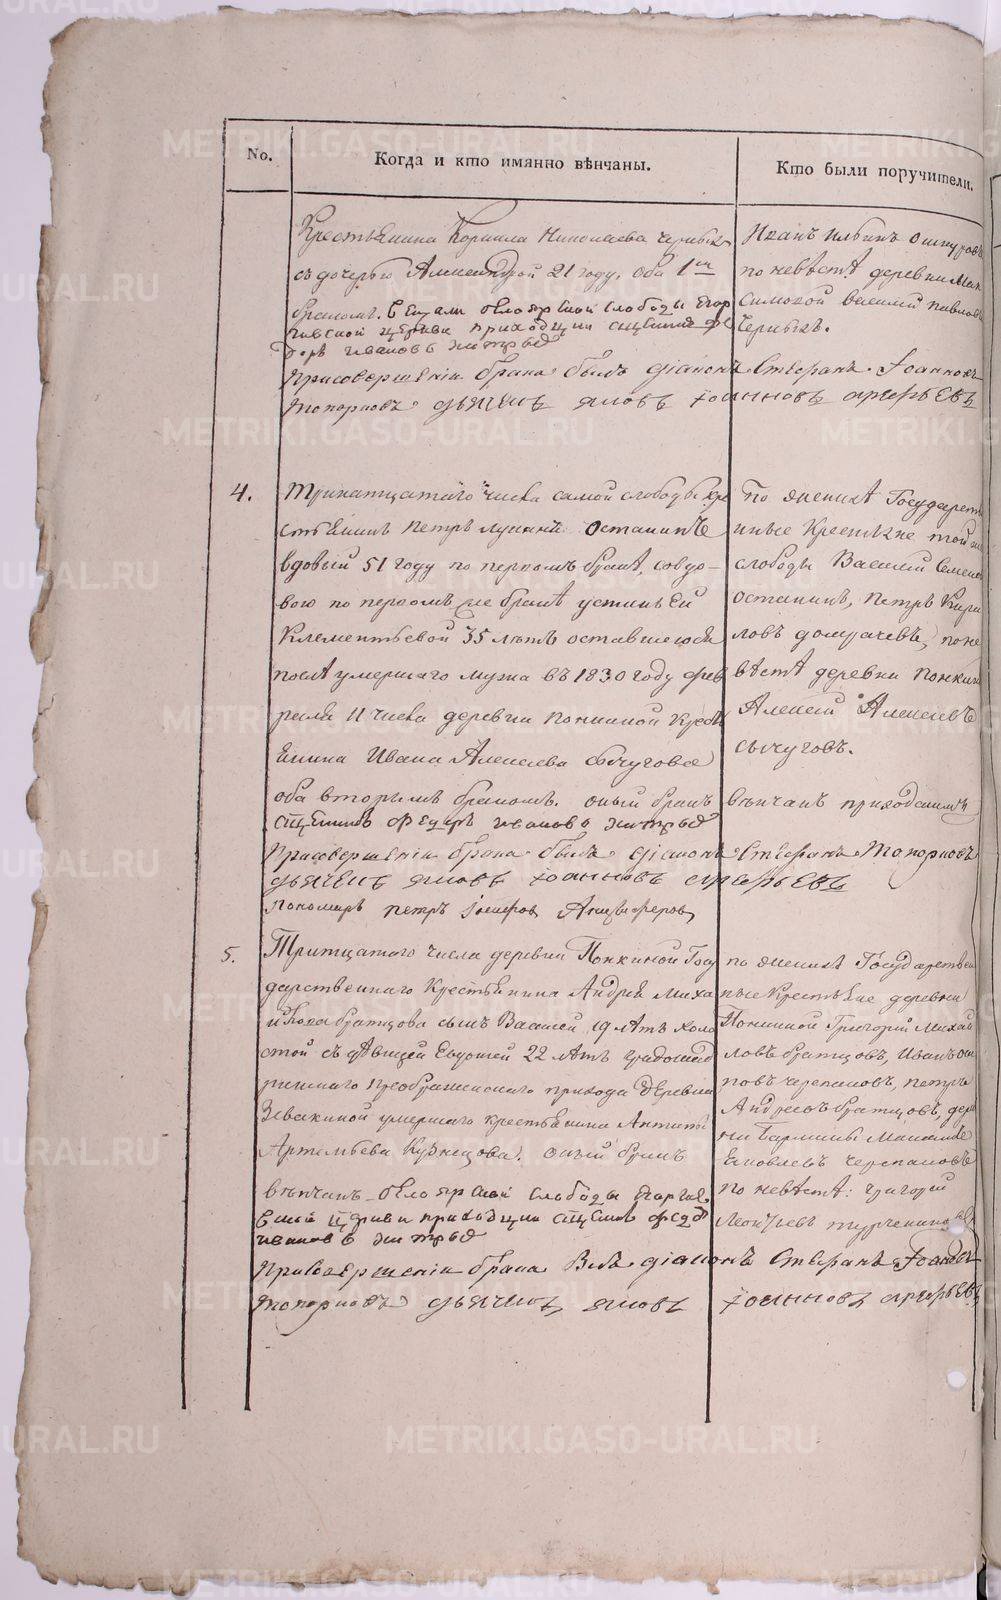 No.
Когда и кто имянно вѣнчаны.
Кто были поручители.
Крестьянина Корнила Николаева Черныхъ
съ дочерью Александрой 21 году, оба 1мъ
бракомъ. Венчали белоярской слободы Егор
гиевской церкви приходции священникъ Фе
доръ Ивановъ
Присовершении брака былъ діаконъ Стефанъ Іоанновъ
Топорковъ дьячекъ Яковъ Іоанновъ
Иванъ Ильинъ
по невѣстѣ деревни Мак
симовой Василий Павловъ
Черныхъ.
4.
Тринатцатаго числа самой слободы кре
стьянинъ Петръ Лукинъ Останинъ
вдовый 51 году по первомъ бракѣ, со вдо-
вою по первомъ же бракѣ Устиньей
Клементьевой 35 лѣтъ оставшеюся
послѣ умершаго мужа въ 1830 году фев
раля 11 числа деревни Понкиной кресть
янина Ивана Алексеева Сычугова
оба вторымъ бракомъ. оный бракъ
венчанъ приходскимъ
священникъ Федоръ Ивановъ
Присовершении брака былъ діаконъ Стефанъ Топорковъ
дьячекъ Яковъ Іоанновъ
Пономарь Петръ
По женихѣ Государст
нные Крестьяне той же
слободы Василий Семенов
Останинъ, Петръ Кири
ловъ Домрачевъ, по не
вѣстѣ деревни Понкин
Алексей Алексеевъ
Сычуговъ.
5.
Тритцатаго числа деревни Понкиной Госу
дарственнаго Крестьянина Андрея Миха
йлова Братцова сынъ Василей 19 лѣтъ холо
стой съ дѣвицей Евдокией 22 лѣтъ
Преображенскаго прихода деревни
Зевакиной умершаго крестьянина Антипы
Артемьева Кузнецова. оный бракъ
вѣнчанъ белоярской слободы Георгие
вской церкви приходции священникъ Федоръ
Ивановъ
Присовершении брака былъ діаконъ Стефанъ Іоанновъ
Топорковъ дьячекъ Яковъ Іоанновъ
по женихѣ Государствен
ные Крестьяне деревни
Понкиной Григорий Михай
ловъ Братцовъ, Иванъ Оси
повъ Черепановъ, Петръ
Андреевъ Братцовъ, дере
вни
Яковлевъ Черепановъ
По невѣстѣ: Григорий
Леонтьевъ